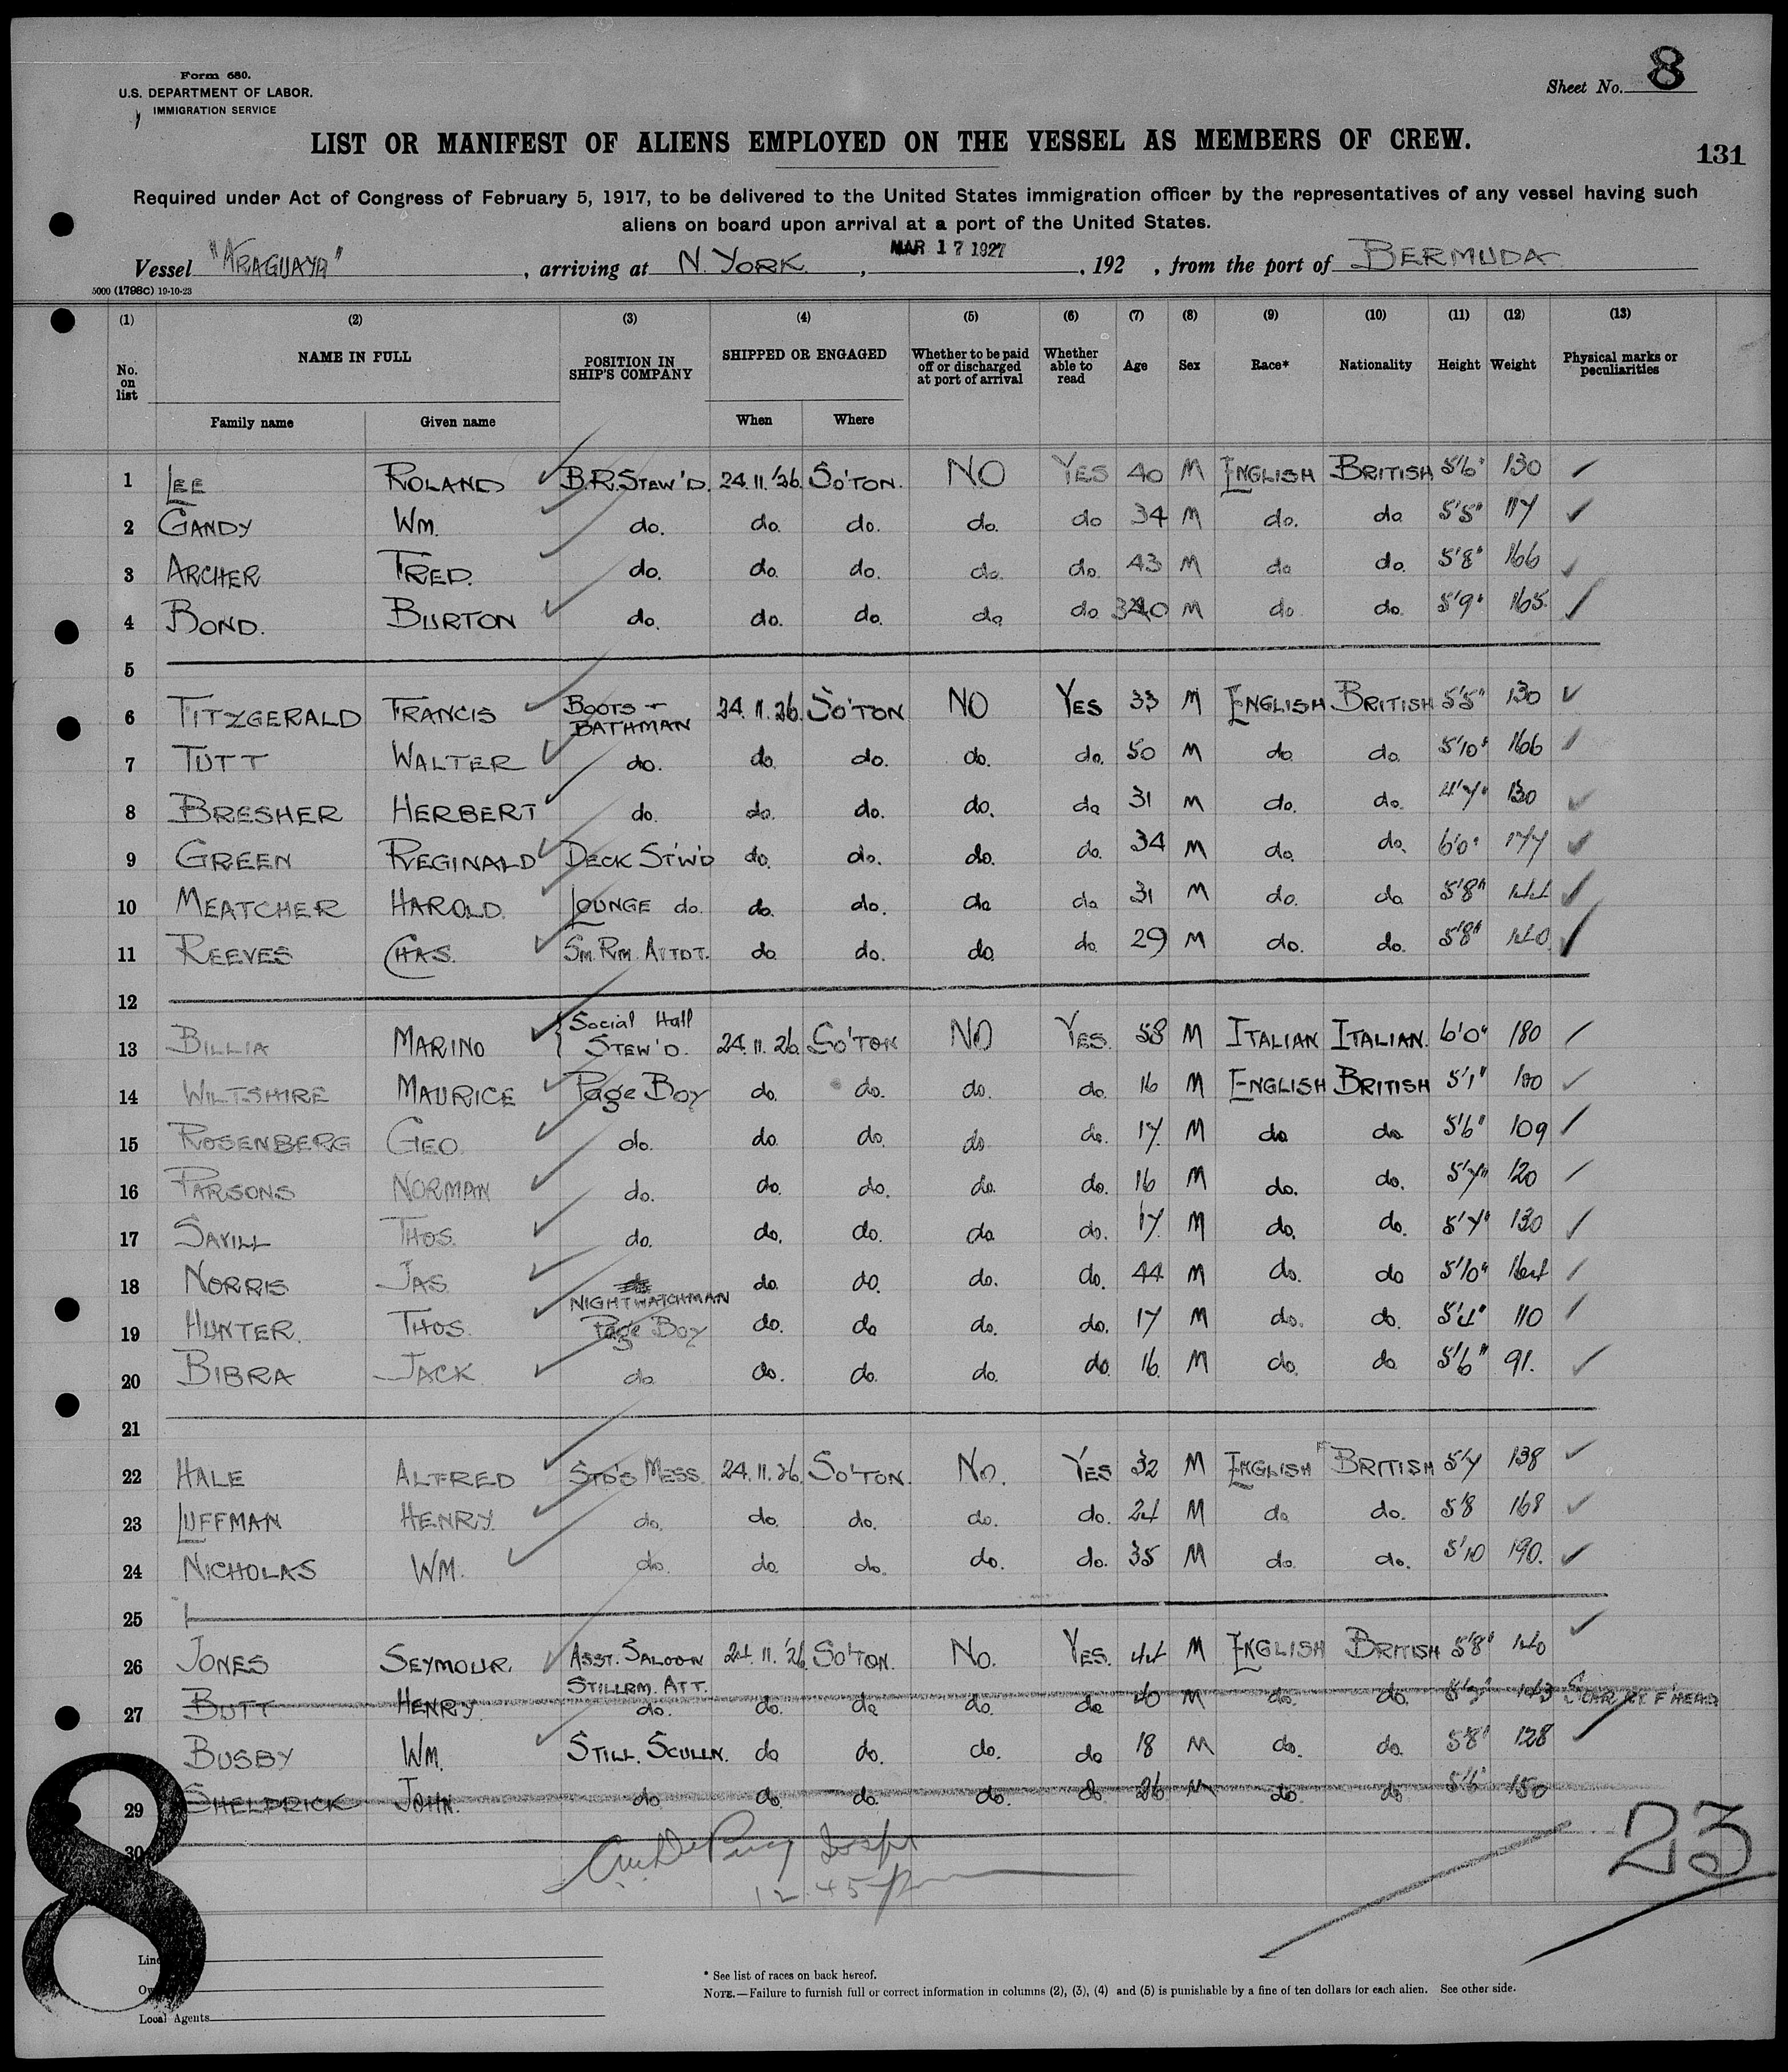 Form 680.
U.S. DEPARTMENT OF LABOR.
IMMIGRATION SERVICE
Sheet No. 8
LIST OR MANIFEST OF ALIENS EMPLOYED ON THE VESSEL AS MEMBERS OF CREW.
131
Required under Act of Congress of February 5, 1917, to be delivered to the United States immigration officer by the representatives of any vessel having such
aliens on board upon arrival at a port of the United States.
Vessel "ARAGUAYA", arriving at N. YORK, MAR 17 1927, 192 , from the port of BERMUDA
5000 (1798C) 19-10-23
(1) (2) (3) (4) (5) (6) (7) (8) (9) (10) (11) (12) (13)
No. on list NAME IN FULL POSITION IN SHIP'S COMPANY SHIPPED OR ENGAGED Whether to be paid off or discharged at port of arrival Whether able to read Age Sex Race* Nationality Height Weight Physical marks or peculiarities
Family name Given name When Where
1 LEE ROLAND B.R. STEW'D. 24.11.'26. SO'TON. NO YES 40 M ENGLISH BRITISH 5'6" 130
2 GANDY WM. do. do. do. do. do 34 M do. do 5'5" 117
3 ARCHER FRED. do. do. do. do. do. 43 M do do. 5'8" 166
4 BOND. BURTON do. do. do. do do 40 M do do. 5'9" 165.
5
6 FITZGERALD FRANCIS BOOTS + BATHMAN 24.11.26. SO'TON NO YES 33 M ENGLISH BRITISH 5'5" 130
7 TUTT WALTER do. do. do. do. do. 50 M do do. 5'10" 166
8 BRESHER HERBERT do. do. do. do. do 31 M do. do. 4'7" 130
9 GREEN REGINALD DECK ST'W'D do. do. do. do. 34 M do. do. 6'0" 177
10 MEATCHER HAROLD. LOUNGE do. do. do. do do 31 M do. do 5'8" 144
11 REEVES CHAS. SM. RM. ATTDT. do do. do. do. 29 M do. do. 5'8" 140
12
13 BILLIA MARINO Social Hall STEW'D. 24.11.26. SO'TON NO YES. 58 M ITALIAN ITALIAN. 6'0" 180
14 WILTSHIRE MAURICE Page Boy do. do. do. do. 16 M ENGLISH BRITISH 5'1" 100
15 ROSENBERG GEO. do. do. do. do. do. 17 M do do 5'6" 109
16 PARSONS NORMAN do. do. do. do. do. 16 M do. do. 5'7" 120
17 SAVILL THOS. do. do. do. do do. 17. M do. do. 5'7" 130
18 NORRIS JAS. NIGHTWATCHMAN do. do. do. do. 44 M do. do 5'10" 164
19 HUNTER. THOS. Page Boy do. do do. do. 17 M do. do. 5'4" 110
20 BIBRA JACK do. do. do. do. do 16 M do. do 5'6" 91.
21
22 HALE ALFRED STD'S MESS. 24.11.26. SO'TON. NO. YES 32 M ENGLISH BRITISH 5'7 138
23 LUFFMAN HENRY. do. do. do. do. do. 24 M do do. 5'8 168
24 NICHOLAS WM. do. do. do. do. do. 35 M do. do. 5'10 190.
25
26 JONES SEYMOUR. ASST. SALOON 24.11.'26. SO'TON. NO. YES. 44 M ENGLISH BRITISH 5'8" 140
STILLRM. ATT.
27 BUTT HENRY. do. do. do do. do 40 M do. do. 143 SCAR RT. F'HEAD
BUSBY WM. STILL. SCULLN. do do. do. do 18 M do. do. 5'8" 128
29 SHELDRICK JOHN. do do. do. do. do. 26 M do. do 5'6" 150
30
12.45 pm
23
8
Line
Ow
Local Agents
* See list of races on back hereof.
NOTE.—Failure to furnish full or correct information in columns (2), (3), (4) and (5) is punishable by a fine of ten dollars for each alien. See other side.